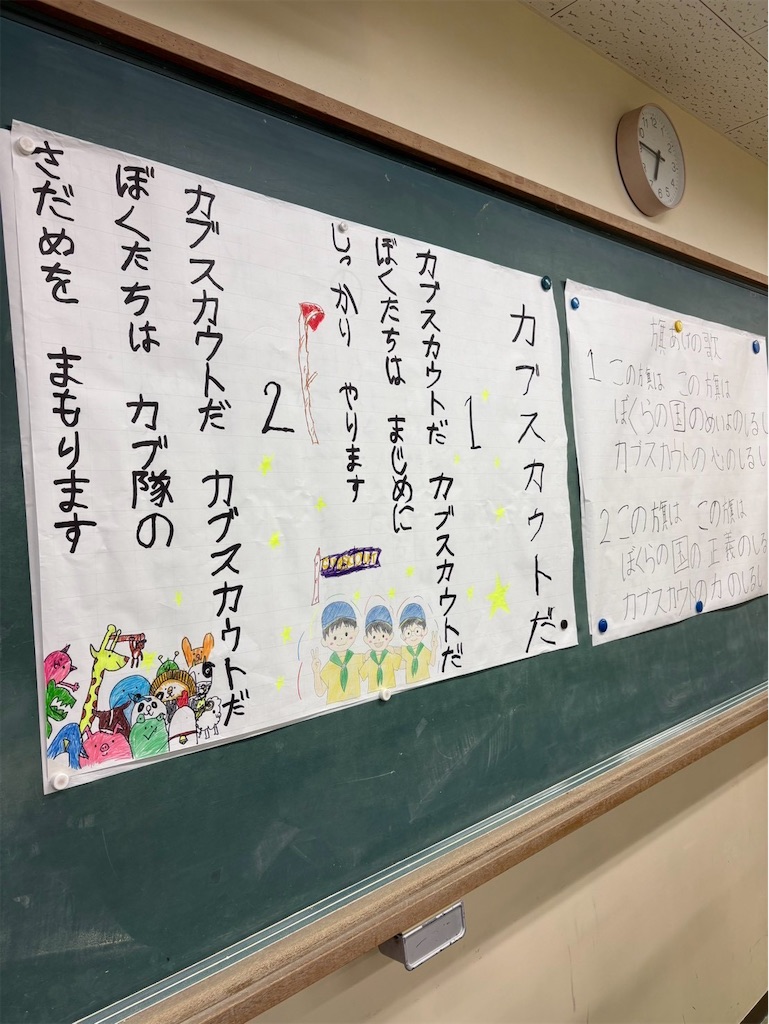 カブスカウトだ
1
カブスカウトだ カブスカウトだ
ぼくたちは まじめに
しっかり やります
2
カブスカウトだ カブスカウトだ
ぼくたちは カブ隊の
さだめを まもります
旗あげの歌
1 この旗は この旗は
ぼくらの国のめいよのしるし
カブスカウトの心のしるし
2 この旗は この旗は
ぼくらの国の正義のしる
カブスカウトの力のしるし